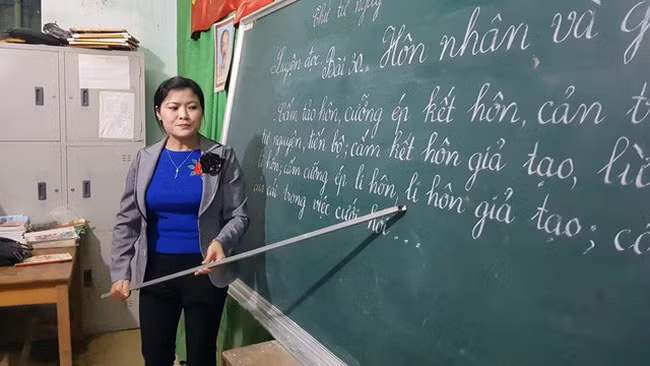 Thứ tư ngày
Luyện đọc: Bài Hôn nhân và g
Cấm tảo hôn, cưỡng ép kết hôn, cản t
tự nguyện, tiến bộ; cấm kết hôn giả tạo, lừ
li hôn; cấm cưỡng ép li hôn, li hôn giả tạo; cấ
của cải trong việc cưới hỏi...